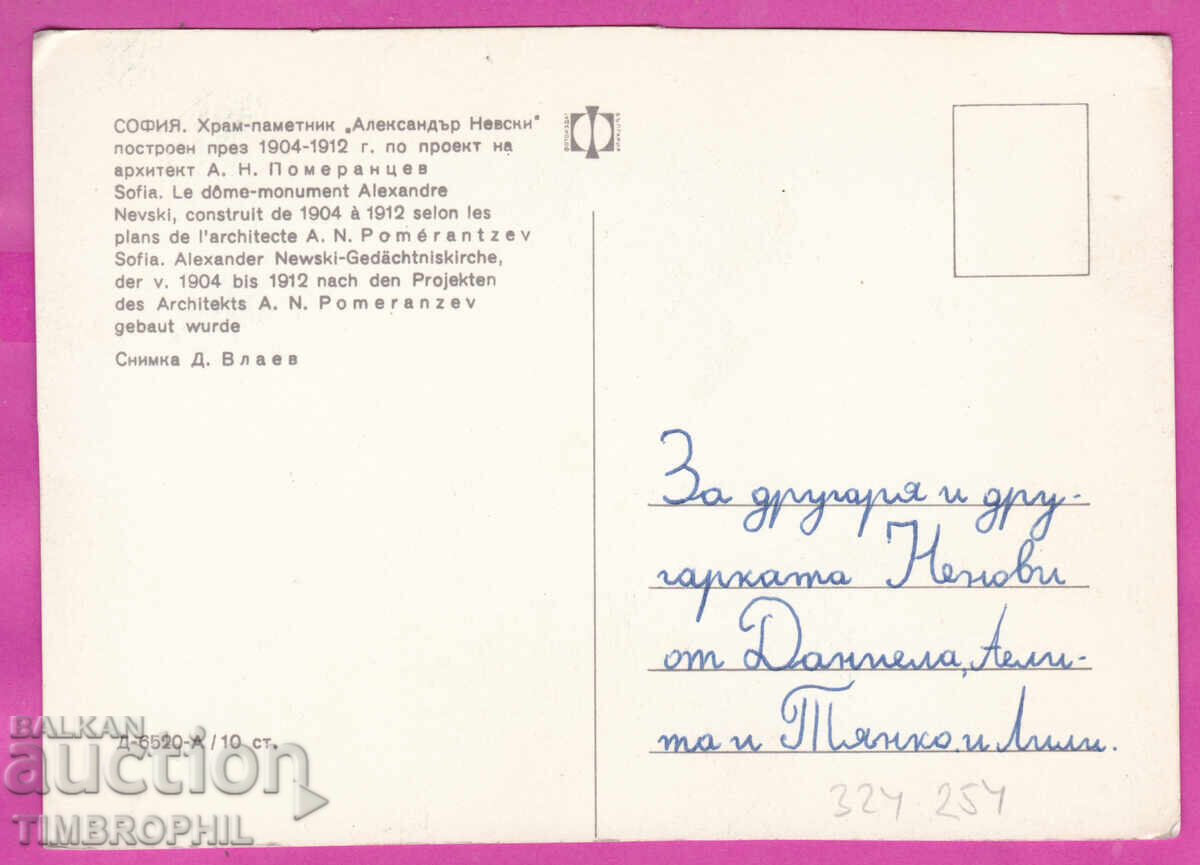 СОФИЯ. Храм-паметник „Александър Невски"
построен през 1904-1912 г. по проект на
архитект А. Н. Померанцев
Sofia. Le dôme-monument Alexandre
Nevski, construit de 1904 à 1912 selon les
plans de l'architecte A. N. Pomérantzev
Sofia. Alexander Newski-Gedächtniskirche,
der v. 1904 bis 1912 nach den Projekten
des Architekts A. N. Pomeranzev
gebaut wurde
Снимка Д. Влаев
ФОТОИЗДАТ
БЪЛГАРИЯ
За другаря и дру-
гарката Ненови
от Даниела, Аели-
та и Тянко, и Лили.
324 254
Д-6520-А/10 ст.
BALKAN
auction
TIMBROPHIL